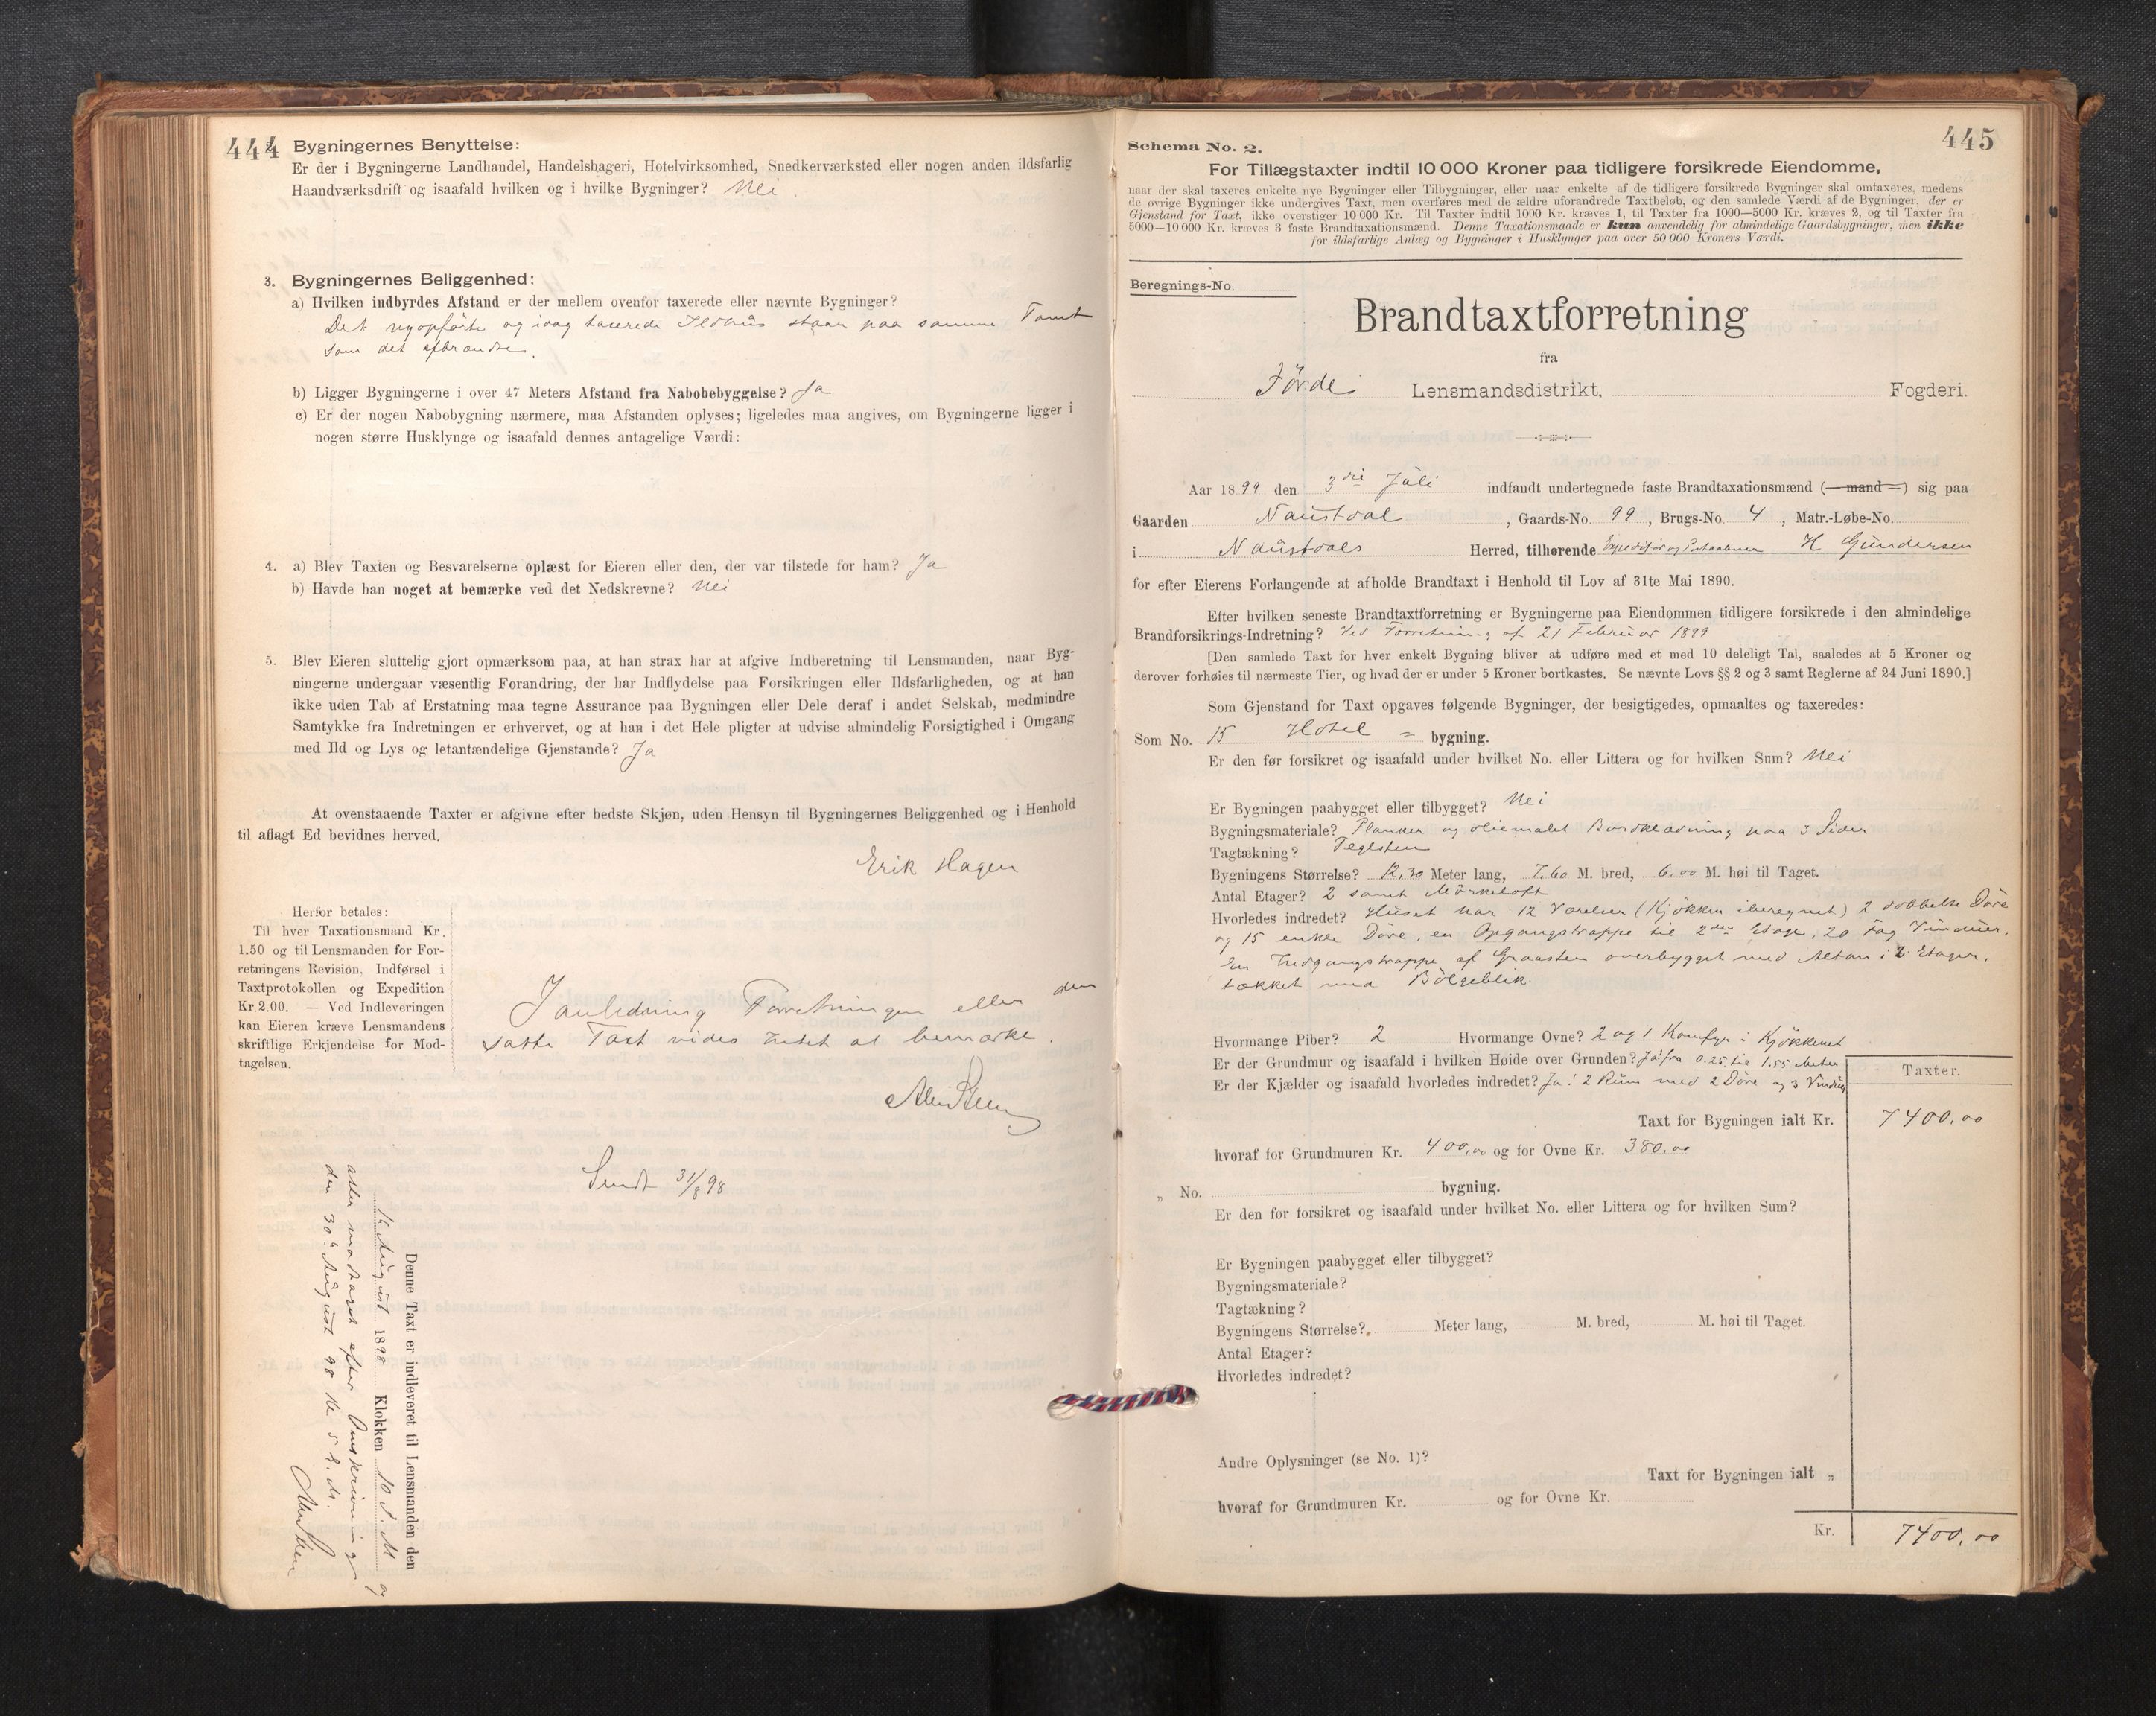 444
Bygningernes Benyttelse:
Er der i Bygningerne Landhandel, Handelsbageri, Hotelvirksomhed, Snedkerværksted eller nogen anden ildsfarlig
Haandværksdrift og isaafald hvilken og i hvilke Bygninger? Nei
3. Bygningernes Beliggenhed:
a) Hvilken indbyrdes Afstand er der mellem ovenfor taxerede eller nævnte Bygninger?
Det nyopførte og idag taxerede Ildhus staar paa samme Tomt
som det afbrændte.
b) Ligger Bygningerne i over 47 Meters Afstand fra Nabobebyggelse? Ja
c) Er der nogen Nabobygning nærmere, maa Afstanden oplyses; ligeledes maa angives, om Bygningerne ligger i
nogen større Husklynge og isaafald dennes antagelige Værdi:
4. a) Blev Taxten og Besvarelserne oplæst for Eieren eller den, der var tilstede for ham? Ja
b) Havde han noget at bemærke ved det Nedskrevne? Nei
5. Blev Eieren sluttelig gjort opmærksom paa, at han strax har at afgive Indberetning til Lensmanden, naar Byg-
ningerne undergaar væsentlig Forandring, der har Indflydelse paa Forsikringen eller Ildsfarligheden, og at han
ikke uden Tab af Erstatning maa tegne Assurance paa Bygningen eller Dele deraf i andet Selskab, medmindre
Samtykke fra Indretningen er erhvervet, og at han i det Hele pligter at udvise almindelig Forsigtighed i Omgang
med Ild og Lys og letantændelige Gjenstande? Ja
At ovenstaaende Taxter er afgivne efter bedste Skjøn, uden Hensyn til Bygningernes Beliggenhed og i Henhold
til aflagt Ed bevidnes herved.
Erik Hagen
Herfor betales:
Til hver Taxationsmand Kr.
1.50 og til Lensmanden for For-
retningens Revision, Indførsel i
Taxtprotokollen og Expedition
Kr. 2.00. — Ved Indleveringen
kan Eieren kræve Lensmandens
skriftlige Erkjendelse for Mod-
tagelsen.
I anledning Forretningen eller den
satte Taxt vides Intet at bemærke.
Sendt 31/8 98
Denne Taxt er indleveret til Lensmanden den
14 August 1898 Klokken 10 F. M og
atter modtaget efter Omskrivning
den 30te August 98 Kl 5 E. M.
445
Schema No. 2.
For Tillægstaxter indtil 10 000 Kroner paa tidligere forsikrede Eiendomme,
naar der skal taxeres enkelte nye Bygninger eller Tilbygninger, eller naar enkelte af de tidligere forsikrede Bygninger skal omtaxeres, medens
de øvrige Bygninger ikke undergives Taxt, men overføres med de ældre uforandrede Taxtbeløb, og den samlede Værdi af de Bygninger, der er
Gjenstand for Taxt, ikke overstiger 10 000 Kr. Til Taxter indtil 1000 Kr. kræves 1, til Taxter fra 1000—5000 Kr. kræves 2, og til Taxter fra
5000—10 000 Kr. kræves 3 faste Brandtaxationsmænd. Denne Taxationsmaade er kun anvendelig for almindelige Gaardsbygninger, men ikke
for ildsfarlige Anlæg og Bygninger i Husklynger paa over 50 000 Kroners Værdi.
Beregnings-No.
Brandtaxtforretning
fra
Förde Lensmandsdistrikt, Fogderi.
Aar 1899 den 3die Juli indfandt undertegnede faste Brandtaxationsmænd (—mand—) sig paa
Gaarden Naustdal, Gaards-No. 99, Brugs-No. 4, Matr.-Løbe-No.
i Naustdals Herred, tilhørende Expeditør og Postaabner H Gundersen
for efter Eierens Forlangende at afholde Brandtaxt i Henhold til Lov af 31te Mai 1890.
Efter hvilken seneste Brandtaxtforretning er Bygningerne paa Eiendommen tidligere forsikrede i den almindelige
Brandforsikrings-Indretning? Ved Forretning af 21 Februar 1899
[Den samlede Taxt for hver enkelt Bygning bliver at udføre med et med 10 deleligt Tal, saaledes at 5 Kroner og
derover forhøies til nærmeste Tier, og hvad der er under 5 Kroner bortkastes. Se nævnte Lovs §§ 2 og 3 samt Reglerne af 24 Juni 1890.]
Som Gjenstand for Taxt opgaves følgende Bygninger, der besigtigedes, opmaaltes og taxeredes:
Som No. 15 Hotel = bygning.
Er den før forsikret og isaafald under hvilket No. eller Littera og for hvilken Sum? Nei
Er Bygningen paabygget eller tilbygget? Nei
Bygningsmateriale? Planker og oliemalet Bordklædning paa 3 Sider
Tagtækning? Teglsten
Bygningens Størrelse? 12.30 Meter lang, 7.60 M. bred, 6.00 M. høi til Taget.
Antal Etager? 2 samt Mörkeloft
Hvorledes indredet? Huset har 12 Værelser (Kjökken iberegnet) 2 dobbelte Döre
og 15 enkle Döre, en Opgangstrappe til 2den Etage, 20 Fag Vinduer.
En Indgangstrappe af Graasten overbygget med Altan i 2 Etager,
tækket med Bölgeblik.
Hvormange Piber? 2 Hvormange Ovne? 2 og 1 Komfyr i Kjökkenet
Er der Grundmur og isaafald i hvilken Høide over Grunden? Ja! fra 0.25 til 1.55 Meter
Er der Kjælder og isaafald hvorledes indredet? Ja! 2 Rum med 2 Döre og 3 Vinduer
Taxter.
Taxt for Bygningen ialt Kr. 7400,00
hvoraf for Grundmuren Kr. 400,00 og for Ovne Kr. 380,00
„ No. bygning.
Er den før forsikret og isaafald under hvilket No. eller Littera og for hvilken Sum?
Er Bygningen paabygget eller tilbygget?
Bygningsmateriale?
Tagtækning?
Bygningens Størrelse? Meter lang, M. bred, M. høi til Taget.
Antal Etager?
Hvorledes indredet?
Andre Oplysninger (se No. 1)?
Taxt for Bygningen ialt „
hvoraf for Grundmuren Kr. og for Ovne Kr.
Kr. 7400,00